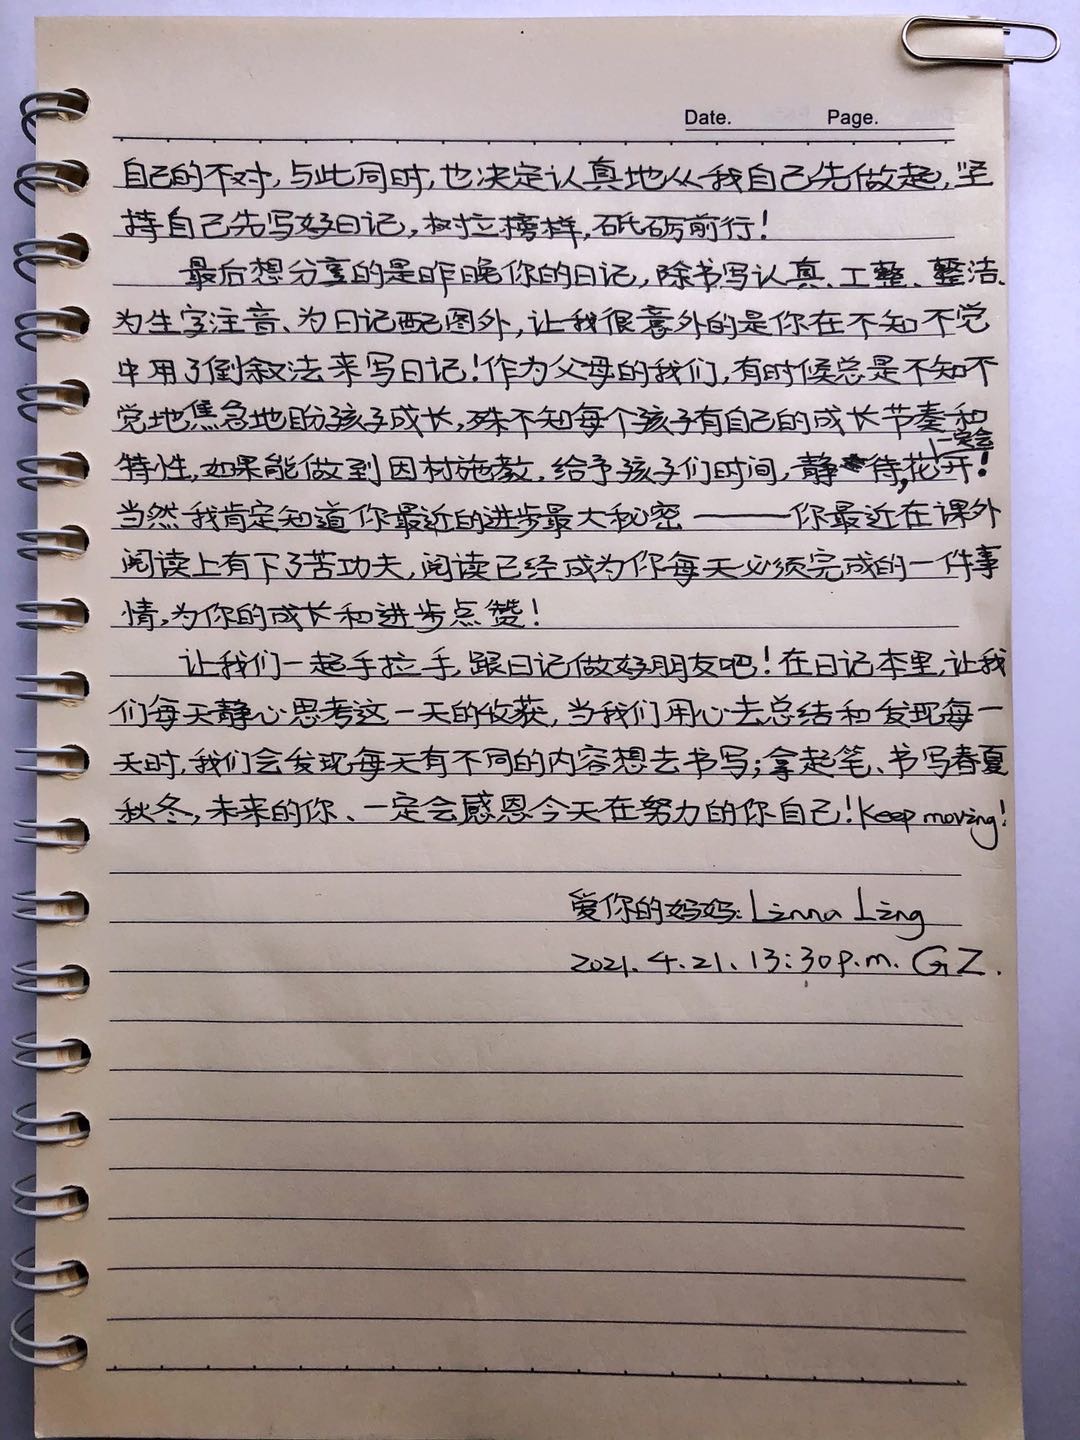 Date. Page.
自己的不对,与此同时,也决定认真地从我自己先做起,坚
持自己先写好日记,树立榜样,砥砺前行!
最后想分享的是昨晚你的日记,除书写认真、工整、整洁、
为生字注音、为日记配图外,让我很意外的是你在不知不觉
中用了倒叙法来写日记!作为父母的我们,有时候总是不知不
觉地焦急地盼孩子成长,殊不知每个孩子有自己的成长节奏和
特性,如果能做到因材施教,给予孩子们时间,静待,花一定会开!
当然我肯定知道你最近的进步最大秘密——你最近在课外
阅读上有下了苦功夫,阅读已经成为你每天必须完成的一件事
情,为你的成长和进步点赞!
让我们一起手拉手,跟日记做好朋友吧!在日记本里,让我
们每天静心思考这一天的收获,当我们用心去总结和发现每一
天时,我们会发现每天有不同的内容想去书写;拿起笔、书写春夏
秋冬,未来的你、一定会感恩今天在努力的你自己!Keep moving!
爱你的妈妈:Linna Ling
2021.4.21.13:30p.m. GZ.